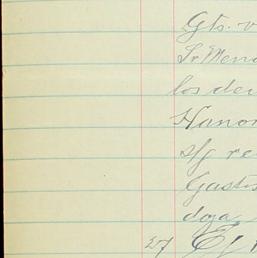 Gts. v
Sr Mend
los de
Honor
s/g re
Gastos
doza
27 Ef